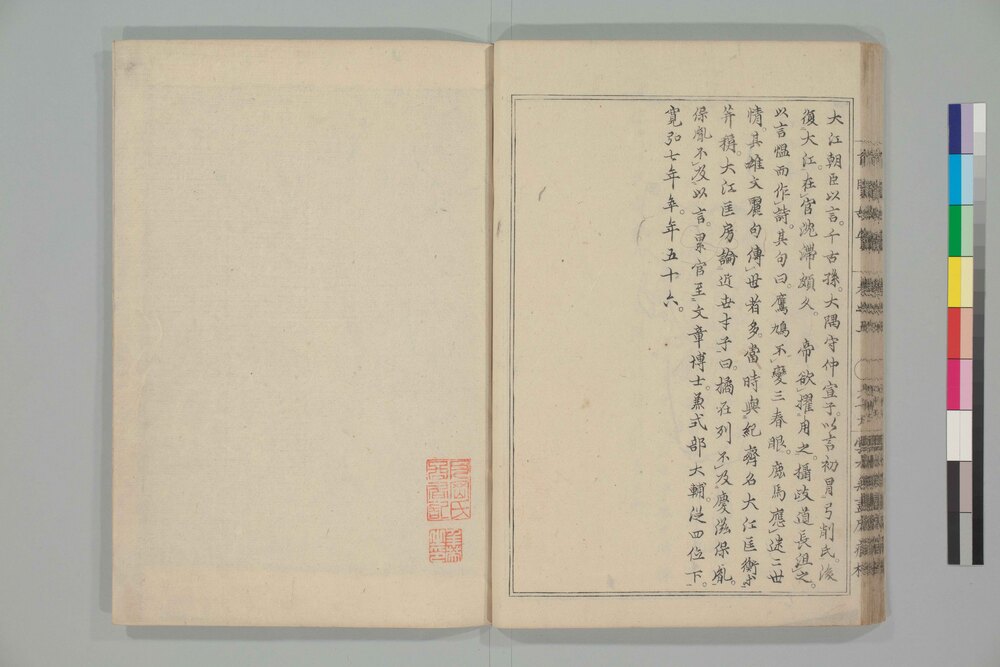 大江朝臣以言。千古孫。大隅守仲宣子。以言初冒弓削氏。後
復大江。在官沈滞頗久。帝欲擢用之。攝政道長沮之。
以言慍而作詩。其句曰。鷹鳩不變三春眼。鹿馬應迷二世
情。其雄文麗句傳世者多。當時與紀齊名大江匡衡
并稱。大江匡房論近世才子曰。橘在列不及慶滋保胤。
保胤不及以言。累官至文章博士。兼式部大輔。從四位下。
寛弘七年卒。年五十六。